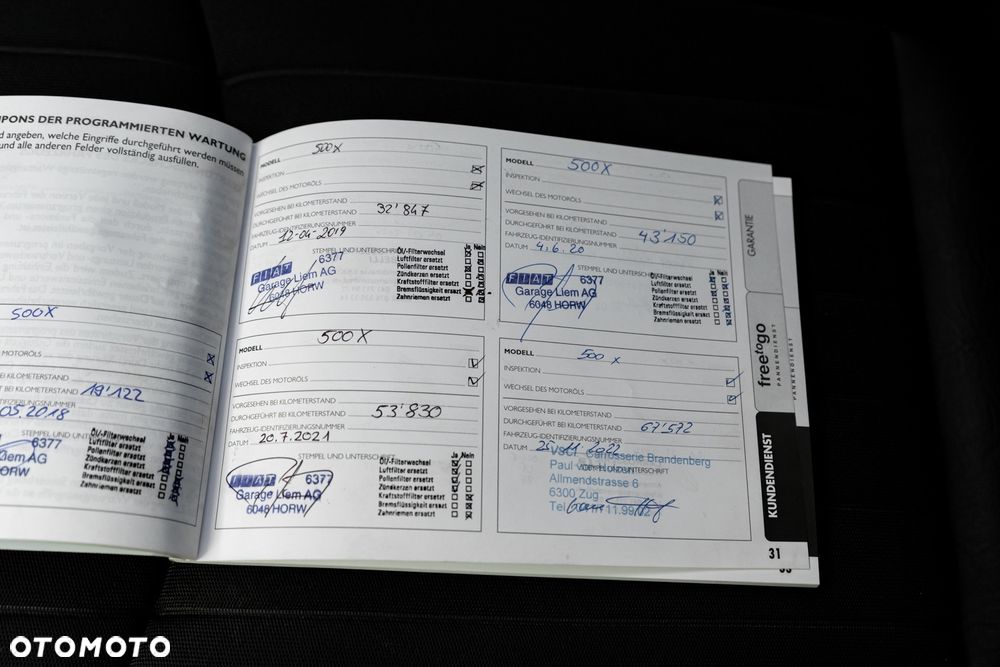 PONS DER PROGRAMMIERTEN WARTUNG
d angeben, welche Eingriffe durchgeführt werden müssen
und alle anderen Felder vollständig ausfüllen.
500X
MOTORÖLS
BEI KILOMETERSTAND
19'122
05.2018
STEMPEL UND UNTERS
6377
AG
HORW
Öl/-Filterwechsel
Luftfilter ersetzt
Pollenfilter ersetzt
Zündkerzen ersetzt
Kraftstofffilter ersetzt
Bremsflüssigkeit ersetzt
Zahnriemen ersetzt
Ja Nein
MODELL 500X
INSPEKTION
WECHSEL DES MOTORÖLS
VORGESEHEN BEI KILOMETERSTAND
DURCHGEFÜHRT BEI KILOMETERSTAND 32'847
FAHRZEUG-IDENTIFIZIERUNGSNUMMER
DATUM 12-04-2019
STEMPEL UND UNTERSCHRIFT
FIAT 6377
Garage Liem AG
6048 HORW
Ja Nein
Öl/-Filterwechsel
Luftfilter ersetzt
Pollenfilter ersetzt
Zündkerzen ersetzt
Kraftstofffilter ersetzt
Bremsflüssigkeit ersetzt
Zahnriemen ersetzt
MODELL 500X
INSPEKTION
WECHSEL DES MOTORÖLS
VORGESEHEN BEI KILOMETERSTAND
DURCHGEFÜHRT BEI KILOMETERSTAND 43'150
FAHRZEUG-IDENTIFIZIERUNGSNUMMER
DATUM 4.6.20
STEMPEL UND UNTERSCH
FIAT 6377
Garage Liem AG
6048 HORW
Ja Nein
Öl/-Filterwechsel
Luftfilter ersetzt
Pollenfilter ersetzt
Zündkerzen ersetzt
Kraftstofffilter ersetzt
Bremsflüssigkeit ersetzt
Zahnriemen ersetzt
MODELL 500X
INSPEKTION
WECHSEL DES MOTORÖLS
VORGESEHEN BEI KILOMETERSTAND
DURCHGEFÜHRT BEI KILOMETERSTAND 53'830
FAHRZEUG-IDENTIFIZIERUNGSNUMMER
DATUM 20.7.2021
STEMPEL UND UNTERSCHRIFT
FIAT 6377
Garage Liem AG
6048 HORW
Ja Nein
Öl/-Filterwechsel
Luftfilter ersetzt
Pollenfilter ersetzt
Zündkerzen ersetzt
Kraftstofffilter ersetzt
Bremsflüssigkeit ersetzt
Zahnriemen ersetzt
MODELL 500 X
INSPEKTION
WECHSEL DES MOTORÖLS
VORGESEHEN BEI KILOMETERSTAND
DURCHGEFÜHRT BEI KILOMETERSTAND 67'572
FAHRZEUG-IDENTIFIZIERUNGSNUMMER
DATUM 25.11.2022
Carrosserie Brandenberg
STEMPEL UND UNTERSCHRIFT
Paul von Holzen
Allmendstrasse 6
6300 Zug
Tel.
GARANTIE
freetogo
PANNENDIENST
PANNENDIENST
KUNDENDIENST
31
33
OTOMOTO